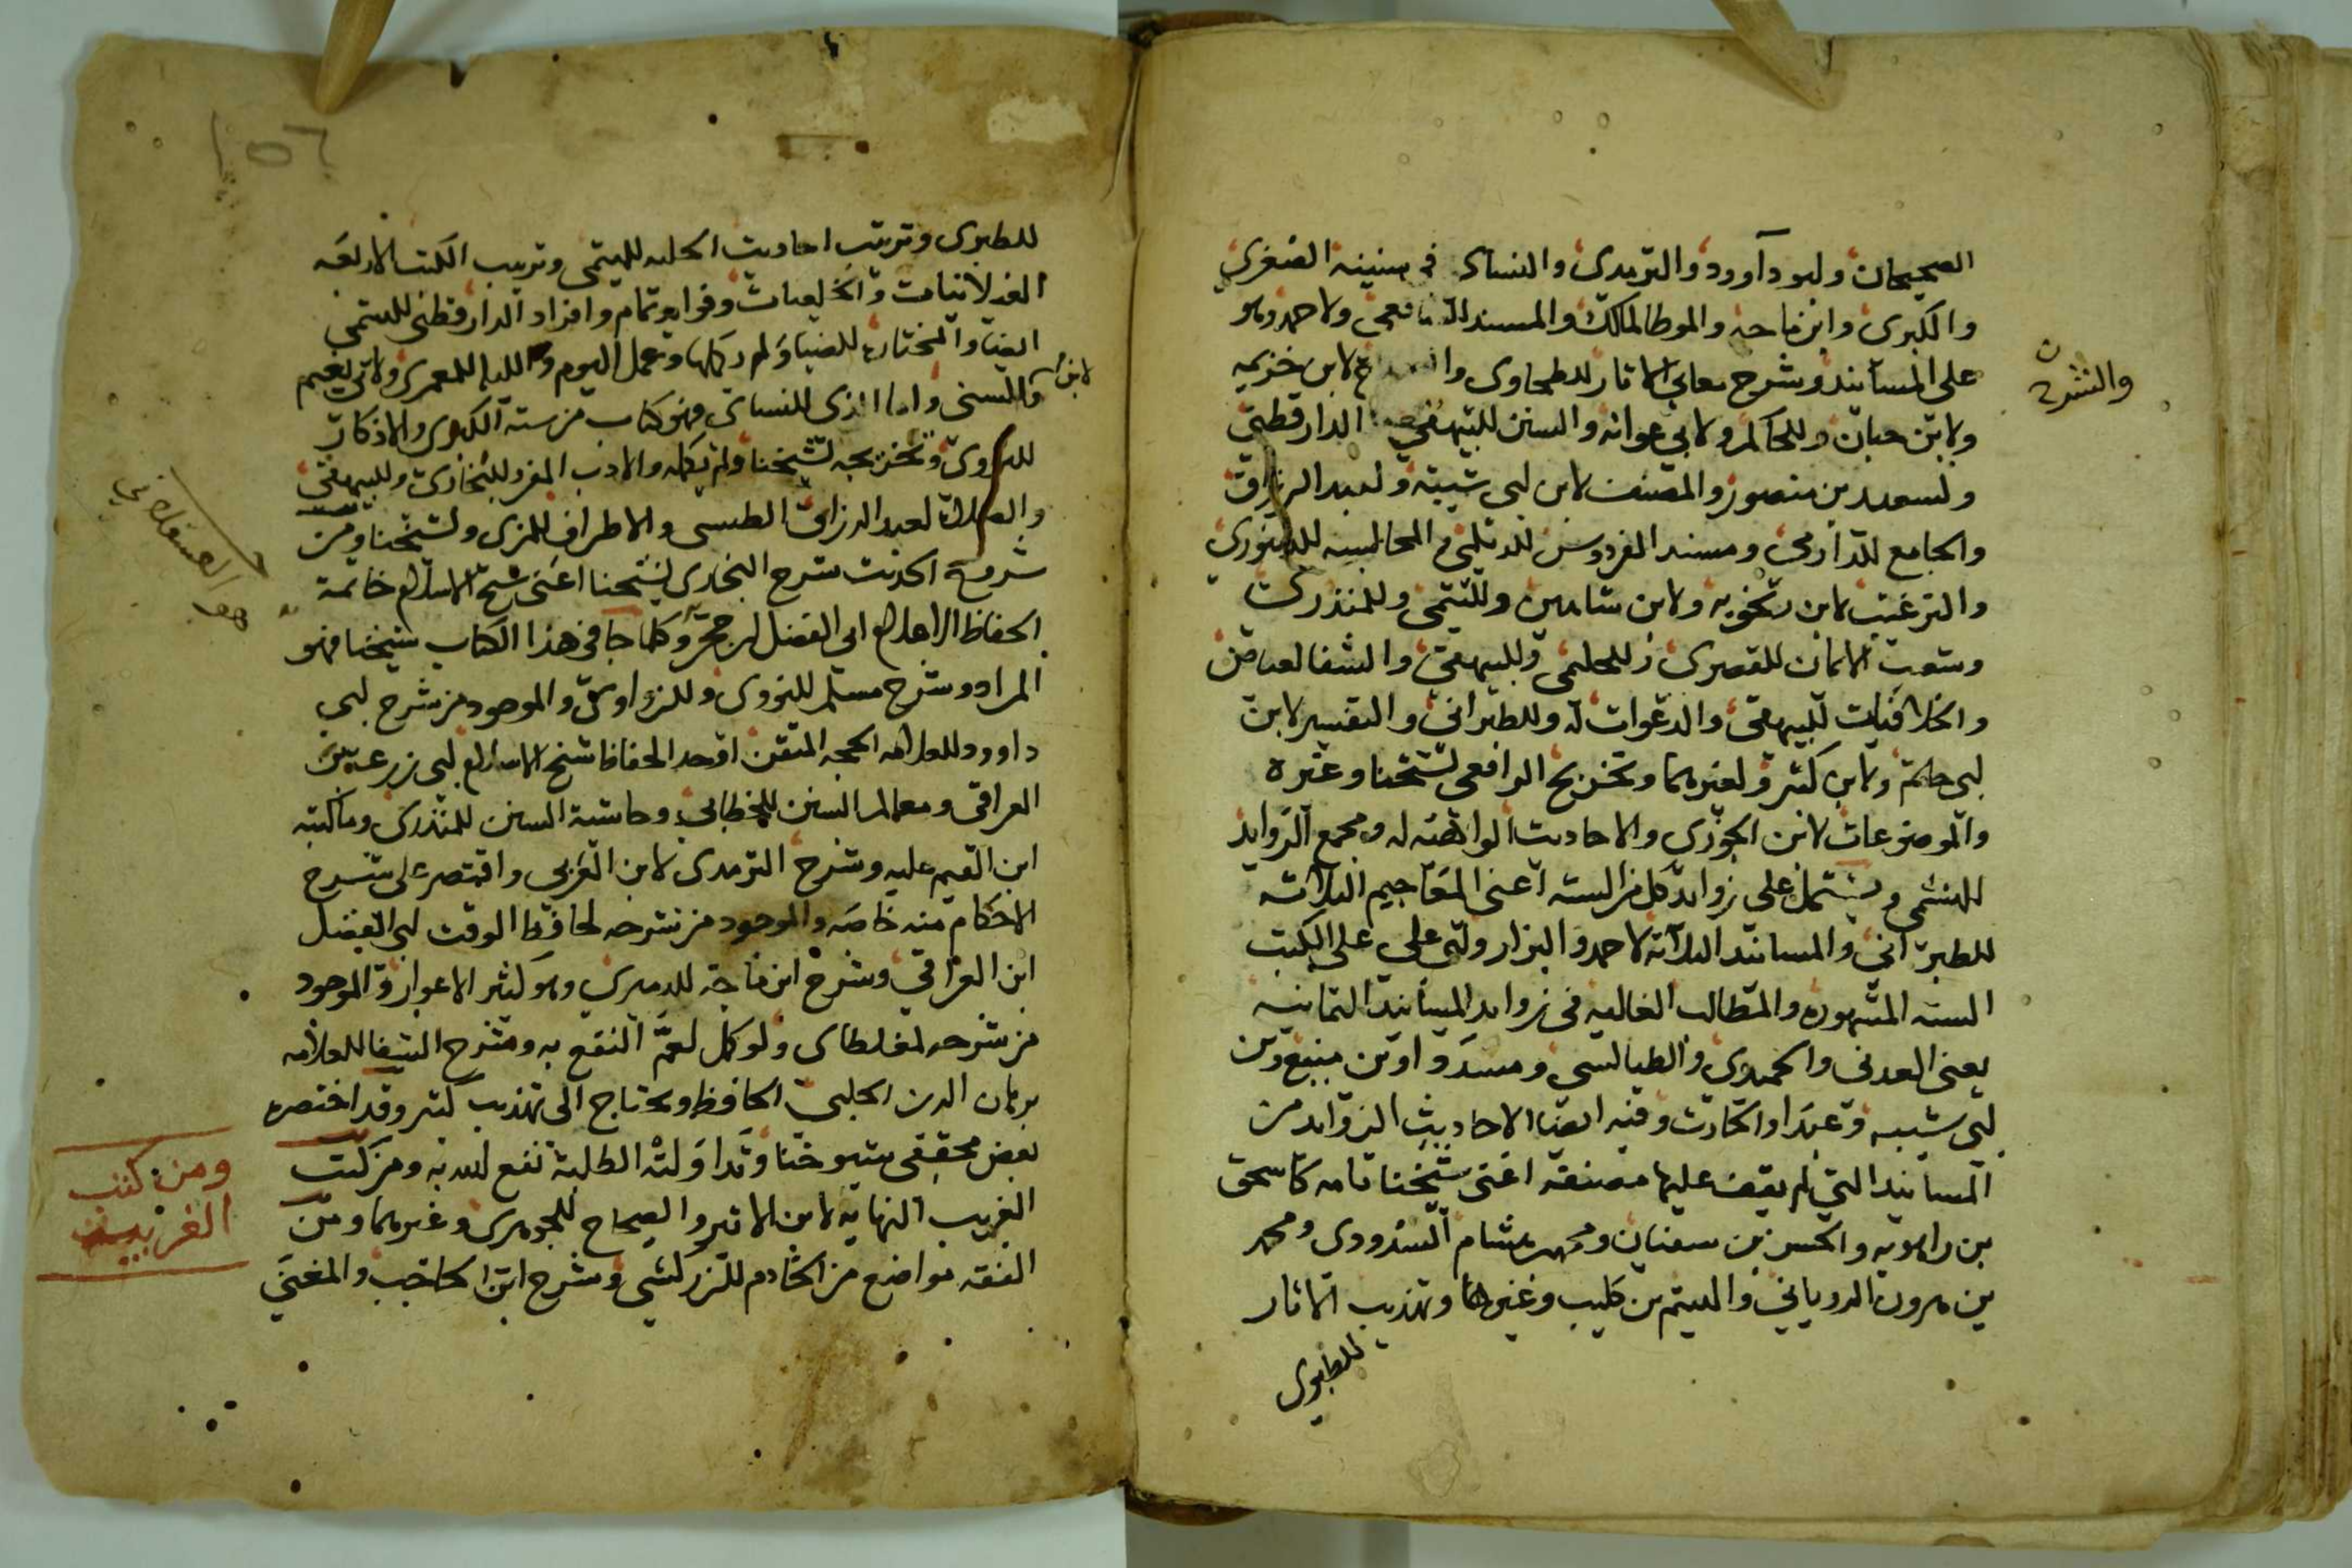 الصحيحان ولبو دآوود والترمدى والنساى فى سننه الصغرى
والكبرى وابن ماجه والموطا لمالك والمسند الشافعى ولاحمد وهو
على المسانيد وشرح معانى الاثار للطحاوى لابن خزيمه
والشرح
ولابن حبان وللحاكم ولابى عوانه والسنن للبيهقى الدارقطنى
ولسعيد بن منصور والمصنف لابن لبى شيبة ولعبد الرزاق
والجامع للدارمى ومسند الفردوس للديلمى والمجالسه للدينورى
والترغيب لابن زنجويه ولابن شاهين وللتيمى وللمنذرى
وشعب الايمان للقصرى وللحليمى وللبيهقى والشفا لعياض
والخلافيات للبيهقى والدعوات له وللطبرانى والتفسير لابن
لبى حاتم ولابن كثير ولغيرهما وتخريج الرافعى لشيخنا وغيره
والموضوعات لابن الجوزى والاحاديث الواهيه له ومجمع الزوايد
للهيثمى ويشتمل على زوايد كل من الستة اعنى المعاجيم الثلاثة
للطبرانى والمسانيد الثلاثة لاحمد والبزار ولبى يعلى على الكتب
الستة المشهوره والمطالب العاليه فى زوايد المسانيد الثمانيه
يعنى العدنى والحميدى والطيالسى ومسددا وابن منيع وبن
لبى شيبه وعبدا والحارث وفيه ايضا الاحاديث الزوايد من
المسانيد التى لم يقف عليها مصنفه اعنى شيخنا تامه كاسحق
بن راهويه والحسن بن سفيان ومحمد بن هشام السدوسى ومحمد
بن هرون الرويانى والهيثم بن كليب وغيرها وتهذيب الاثار
للطبرى
للطبرى وترتيب احاديث الحليه للهيثمى وترتيب الكتب الاربعه
الغيلانيات والخلعيات وفوايد تمام وافراد الدارقطنى للهيثمى
ايضا والمختاره للضيا ولم يكملها وعمل اليوم والليله للمعمرى ولابى نعيم
لابن
والسنى واما الذى للنساى فهو كتاب من سننه الكبرى والاذكار
للنووى وتخريجه لشيخنا ولم يكمله والادب المفرد للبخارى وللبيهقى
والصلاة لعبد الرزاق الطبسى والاطراف للمزى ولشيخنا ومن
شروح الحديث شرح البخارى لشيخنا اعنى شيخ الاسلام خاتمة
الحفاظ الاعلام ابى الفضل بن حجر وكلما جا فى هذا الكتاب شيخنا فهو
هو العسقلانى
المراد وشرح مسلم للنووى وللزواوى والموجود من شرح لبى
داوود للعلامه الحجه المتقن اوحد الحفاظ شيخ الاسلام لبى زرعة بن
العراقى ومعالم السنن للخطابى وحاشية السنن للمنذرى وماكتبه
ابن القيم عليه وشرح الترمدى لابن العربى واقتصر على شرح
الاحكام منه خاصه والموجود من شرحه لحافظ الوقت لبى الفضل
ابن العراقى وشرح ابن ماجة للدميرى وهو كثير الاعواز والموجود
من شرحه لمغلطاى ولو كمل لعم النفع به وشرح الشفا للعلامه
برهان الدين الحلبى الحافظ ويحتاج الى تهذيب كثير وقد اختصره
بعض محققى شيوخنا وتداولته الطلبة نفع الله به ومن كتب
الغريب النهايه لابن الاثير والصحاح للجوهرى وغيرهما ومن
ومن كتب
الغريب
الفقه مواضع من الخادم للزركشى وشرح ابن الحاجب والمغنى